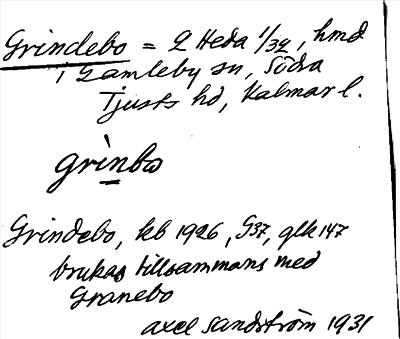 Grindebo = 2 Heda 1/32, hmd
i Gamleby sn, Södra
Tjusts hd, Kalmar l.
grìnbω
Grindebo, kb 1926, G37, glk 147
brukas tillsammans med
Granebo
axel sandström 1931